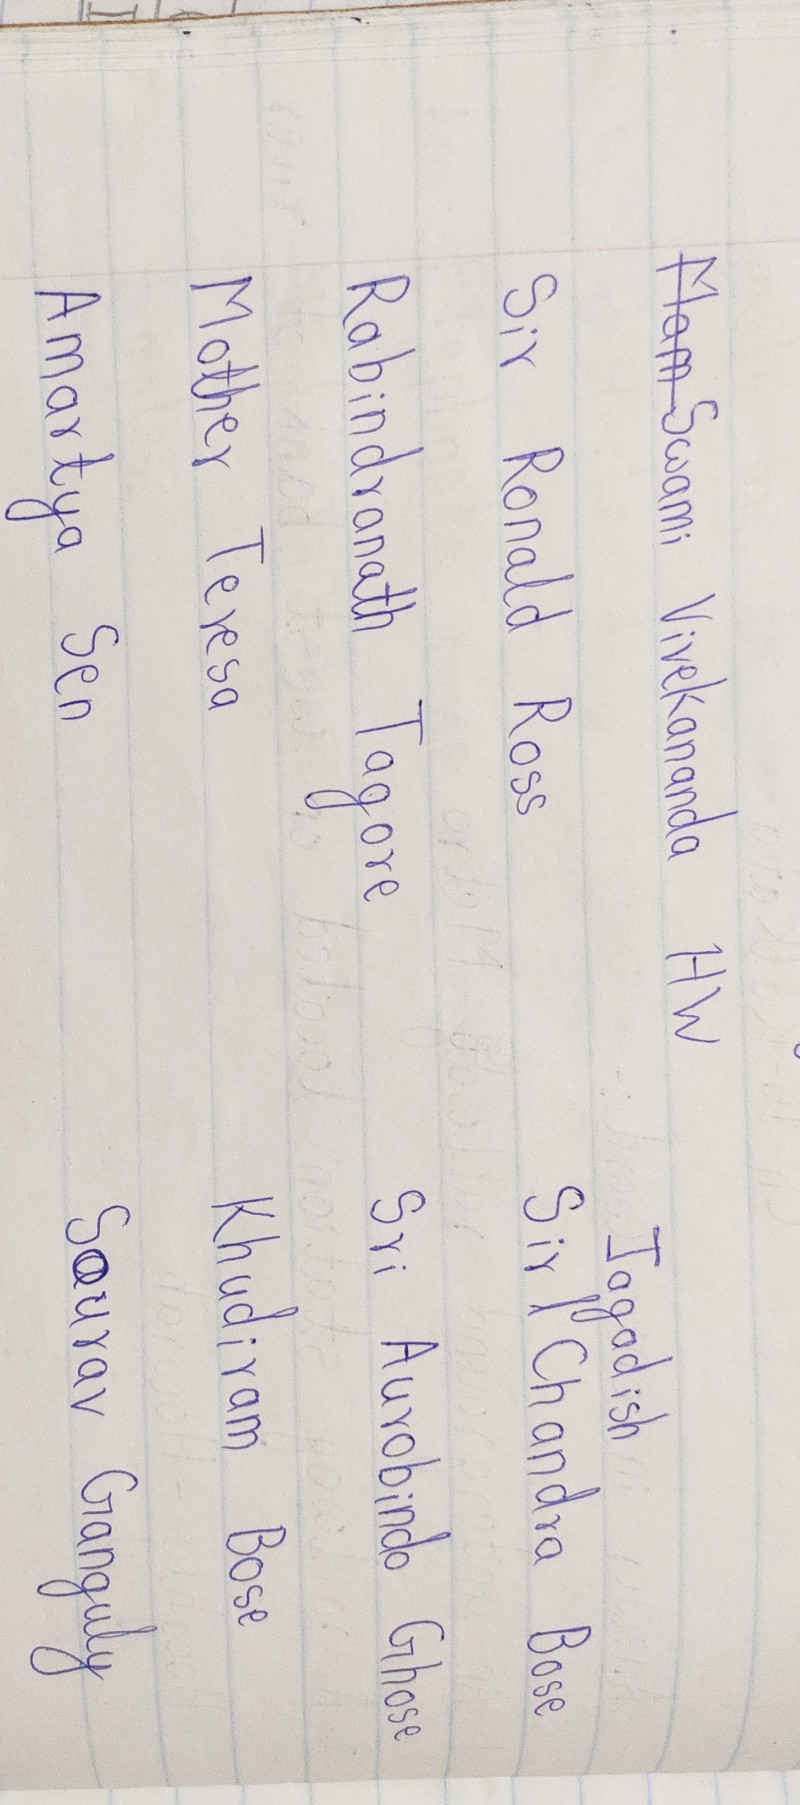 Swami Vivekananda HW
Jagadish
Sir Ronald Ross Sir Chandra Bose
Rabindranath Tagore Sri Aurobindo Ghose
Mother Teresa Khudiram Bose
Amartya Sen Sourav Ganguly